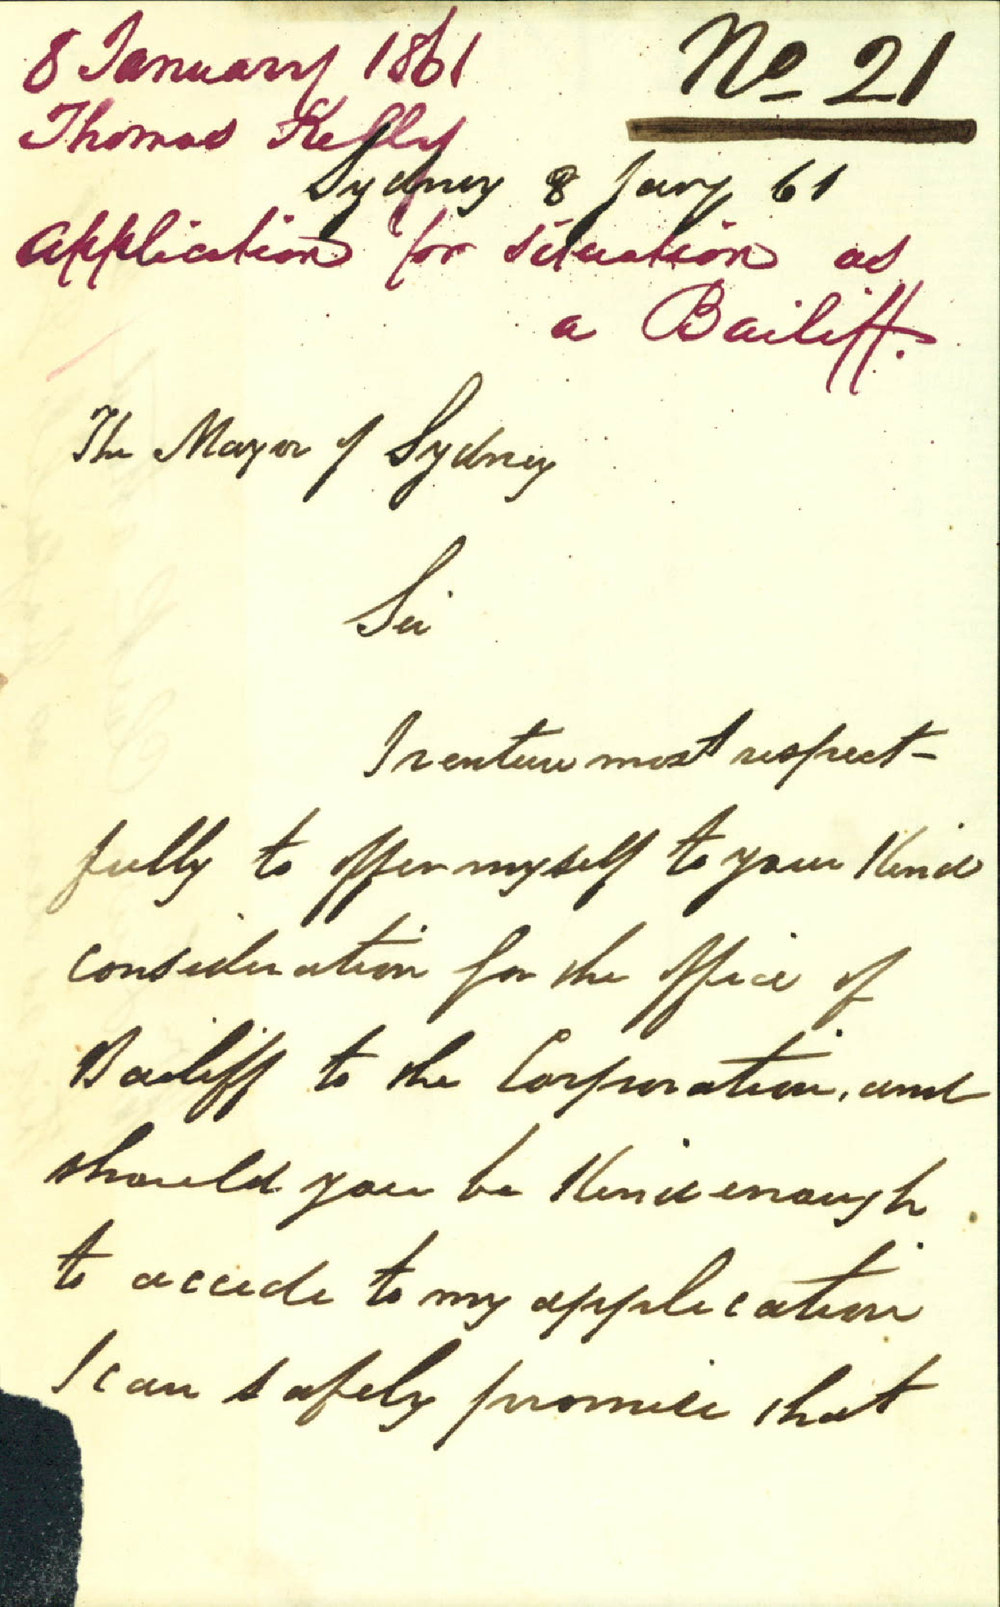 8 January 1861
No 21
Thomas Kelly
Sydney 8 Jany 61
Application for situation as
a Bailiff.
The Mayor of Sydney
Sir
I venture most respect-
fully to offer myself to your Kind
consideration for the office of
Bailiff to the Corporation, and
should you be Kind enough
to accede to my application
I can safely promise that